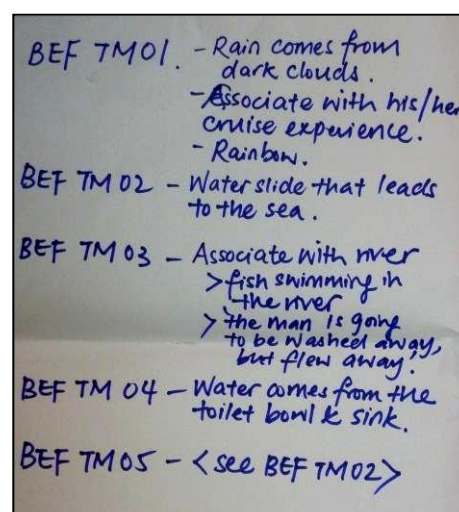 BEF TM01. - Rain comes from
dark clouds.
- Associate with his/her
cruise experience.
- Rainbow.
BEF TM 02 - Water slide that leads
to the sea.
BEF TM 03 - Associate with river
> fish swimming in
the river
> the man is going
to be washed away,
but flew away!
BEF TM 04 - Water comes from the
toilet bowl & sink.
BEF TM05 - <see BEF TM02>